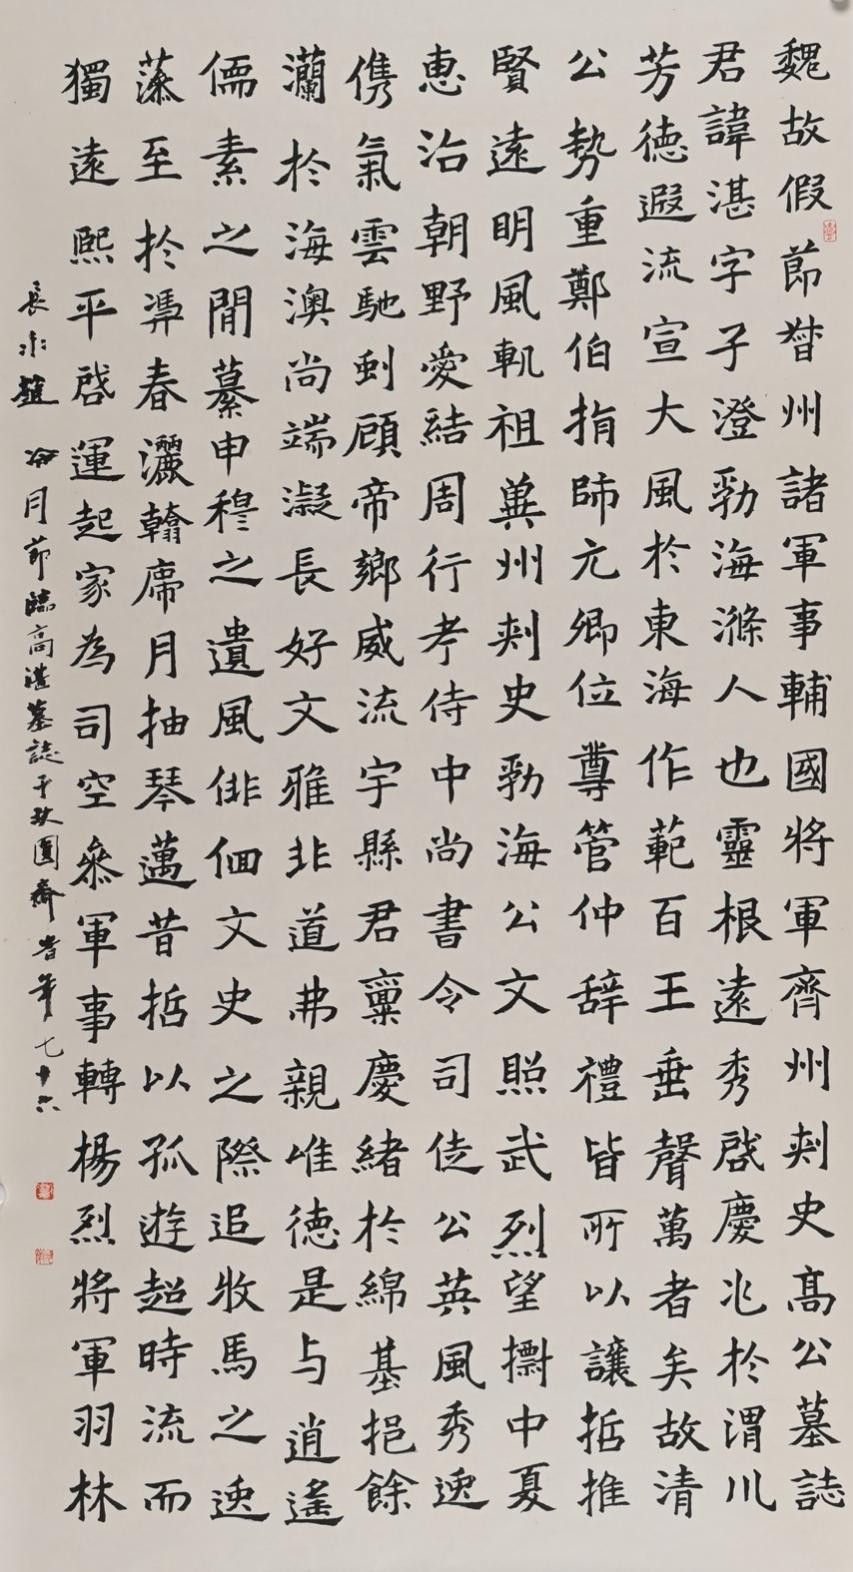 魏故假節督州諸軍事輔國將軍齊州刺史高公墓誌
君諱湛字子澄勃海滌人也靈根遠秀啟慶兆於渭川
芳德遐流宣大風於東海作範百王垂聲萬者矣故清
公勢重鄭伯捐師元卿位尊管仲辞禮皆所以讓哲推
賢遠明風軌祖冀州刺史勃海公文照武烈望摽中夏
惠治朝野愛結周行考侍中尚書令司徒公英風秀逸
儁氣雲馳剉顧帝鄉威流宇縣君稟慶緒於綿基挹餘
瀾於海澳尚端凝長好文雅非道弗親唯德是与逍遙
儒素之間慕申穆之遺風俳佪文史之際追牧馬之逸
藻至於憑春灑翰席月抽琴邁昔哲以孤遊超時流而
獨遠熙平啟運起家為司空叅軍事轉楊烈將軍羽林
長水趙冷月節臨高湛墓誌于玖園齋昔年七十六